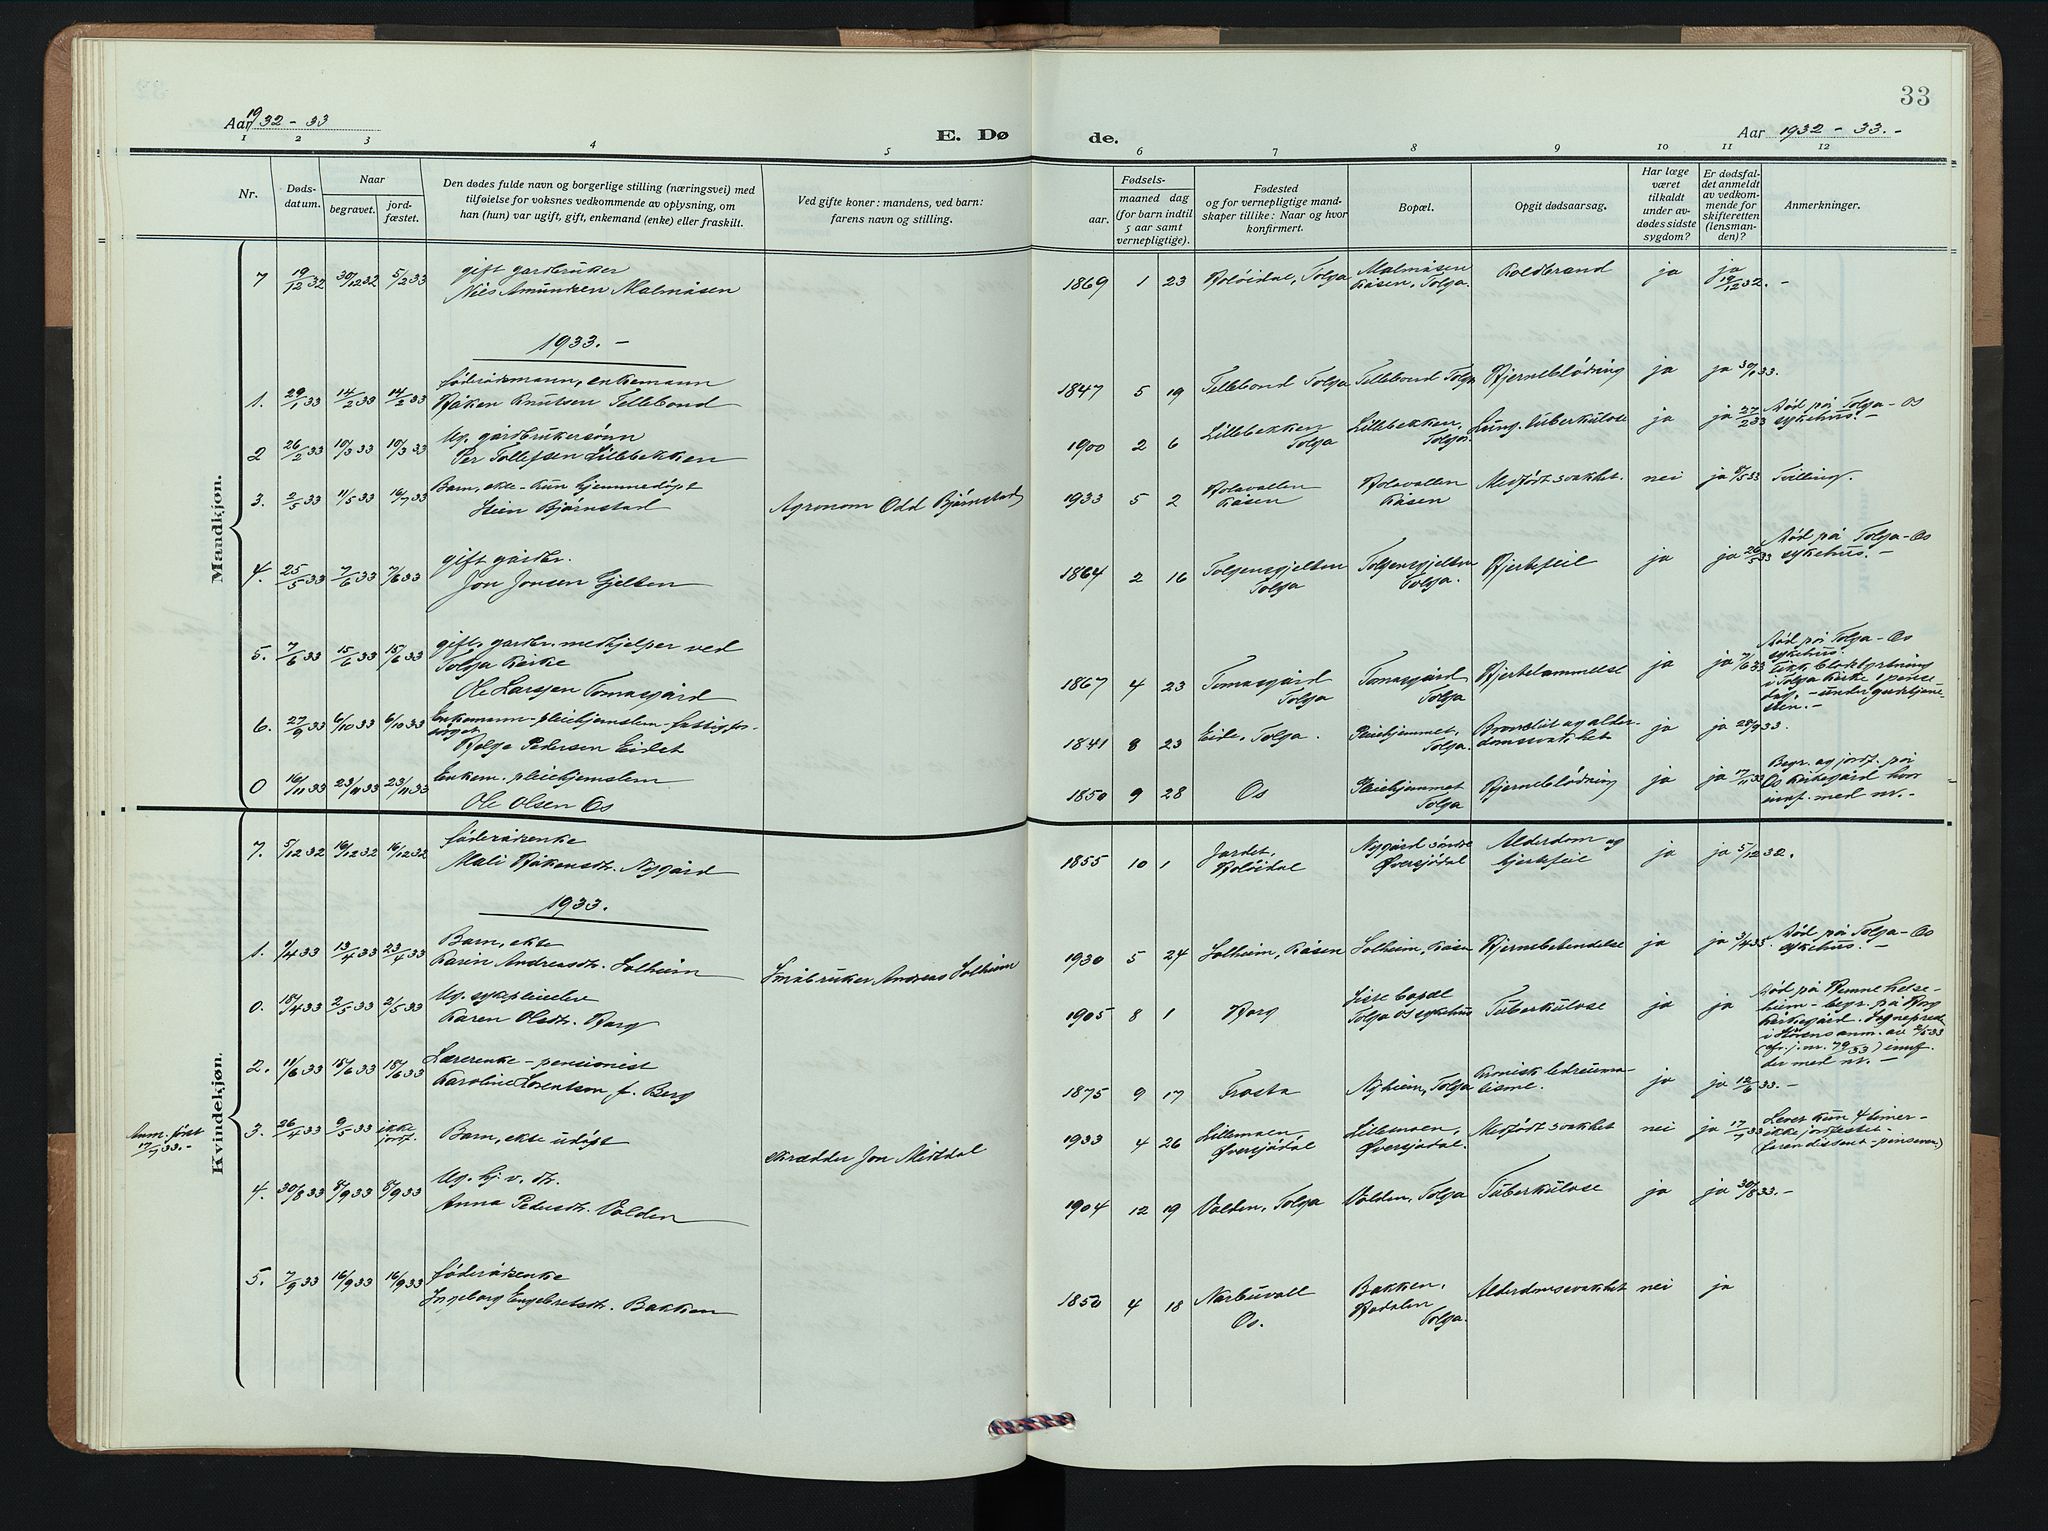 33
Aar 1932 - 33
E. Dø
de.
Aar 1932 - 33. -
1 2 3 4 5 6 7 8 9 10 11 12
Nr.
Døds-
datum.
Naar
begravet.
jord-
fæstet.
Den dødes fulde navn og borgerlige stilling (næringsvei) med
tilføielse for voksnes vedkommende av oplysning, om
han (hun) var ugift, gift, enkemand (enke) eller fraskilt.
Ved gifte koner: mandens, ved barn:
farens navn og stilling.
Fødsels-
aar.
maaned dag
(for barn indtil
5 aar samt
vernepligtige).
Fødested
og for vernepligtige mand-
skaper tillike: Naar og hvor
konfirmert.
Bopæl.
Opgit dødsaarsag.
Har læge
været
tilkaldt
under av-
dødes sidste
sygdom?
Er dødsfal-
det anmeldt
av vedkom-
mende for
skifteretten
(lensman-
den)?
Anmerkninger.
Mandkjøn.
7 19/12 32 30/12 32 5/2 33 gift gardbruker
Nils Amundsen Malmåsen
1869 1 23 Holøidal, Tolga Malmåsen
Kåsen, Tolga. Koldbrand ja ja
19/12 32. -
1933. -
1. 29/1 33 14/2 33 14/2 33 føderådsmann, enkemann
Håken Knutsen Tellebond
1847 5 19 Tellebond Tolga Tellebond Tolga Hjerneblødning ja ja 30/1 33.
2 26/2 33 10/3 33 10/3 33 Ug. gårdbrukersønn
Per Tollefsen Lillebekken
1900 2 6 Lillebekken
Tolga Lillebekken,
Tolga. Lung. tuberkulose ja ja 27/2 33 Død på Tolga-Os
sykehus. -
3. 2/5 33 11/5 33 16/7 33 Barn, ekte - kun hjemmedøpt
Stein Bjørnstad
Agronom Odd Bjørnstad
1933 5 2 Holavollen
Kåsen Holavollen
Kåsen Medfødt svakhet. nei ja 8/5 33 Tvilling.
4. 25/5 33 7/6 33 7/6 33 gift gårdbr.
Jon Jonsen Gjelten
1864 2 16 Tolgensgjelten
Tolga Tolgensgjelten
Tolga. Hjertefeil ja ja 26/5 33 Død på Tolga-Os
sykehus. -
5. 7/6 33 15/6 33 15/6 33 gift, gardbr. medhjelper ved
Tolga Kirke
Ole Larssen Tomasgård
1867 4 23 Tomasgård
Tolga Tomasgård
Tolga Hjertelammelse ja ja 7/6 33 Død på Tolga-Os
sykehus.
Fikk blodstyrtning
i Tolga Kirke 1 pinse-
dag, - under gudstjene-
sten. -
6. 27/9 33 6/10 33 6/10 33 Enkemann - pleiehjemslem - fattigfor-
sørget
Helge Pedersen Eidet
1841 8 23 Eide, Tolga. Pleiehjemmet,
Tolga. Bronkit og alder-
domssvakhet ja ja 28/9 33.
0 16/11 33 23/11 33 23/11 33 Enkem. pleiehjemslem
Ole Olsen Os
1850 9 28 Os Pleiehjemmet
Tolga Hjerneblødning ja ja 17/11 33 Begr. og jordf. på
Os Kirkegård hvor
innf. med nr. -
Kvindekjøn.
7. 5/12 32 16/12 32 16/12 32 føderådsenke
Mali Håkensdtr. Nygård
1855 10 1 Jordet,
Holøidal Nygård søndre
Øversjødal Alderdom og
hjertefeil ja ja 5/12 32.
1933.
1. 1/4 33 13/4 33 23/4 33 Barn, ekte
Karin Andreasdtr. Solheim
Småbruker Andreas Solheim
1930 5 24 Solheim, Kåsen Solheim, Kåsen Hjernebetendelse ja ja 3/4 33. Død på Tolga-Os
sykehus. -
0. 18/4 33 2/5 33 2/5 33 Ug. sykepleielev
Karen Olsdtr. Horg
1905 8 1 Horg
Tolga Os sykehus Tuberkulose ja ja Død på Hjemne helse-
heim - begr. på Horg
Kirkegård. Sogneprest
i Støren sanm. av 2/5 33
(cfr. j. nr. 79/33) innf.
der med nr. -
2. 11/6 33 18/6 33 18/6 33 Lærerenke - pensionist
Karoline Lorentson f. Berg
1875 9 17 Frosta Nyheim, Tolga Kronisk ledreuma-
tisme. ja ja 12/6 33. -
Anm. først
17/7 33. -
3. 26/4 33 9/5 33 ikke
jordf. Barn, ekte udøpt
Skrædder Jon Midtdal
1933 4 26 Lillemoen,
Øversjødal Lillemoen,
Øversjødal. Medfødt svakhet nei ja 17/7 33 Levet kun 4 timer -
ikke jordfestet -
faren dissent - pinseven)
4. 30/8 33 8/9 33 8/9 33 Ug. hj. v. dtr.
Anna Pedersdtr. Volden
1904 12 19 Volden, Tolga Volden, Tolga Tuberkulose ja ja 30/8 33. -
5. 7/9 33 16/9 33 16/9 33 føderådsenke
Ingeborg Engebretsdtr. Bakken
1850 4 18 Narbuvoll
Os. Bakken,
Hodalen
Tolga. Alderdomssvakhet nei ja